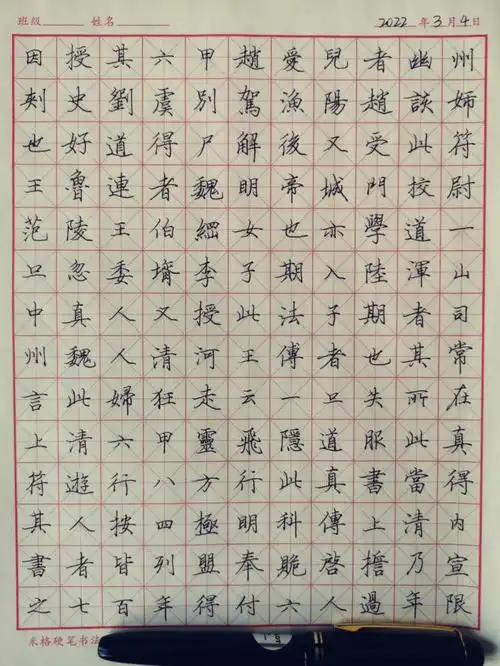 班級 姓名 2022年3月4日
因授其六甲趙愛兒者幽州
刾史劉虞別駕漁陽趙談姉
也好道得尸解後又受此符
王魯連者魏明帝城門挍尉
范陵王伯綱女也亦學道一
旦忽委壻李子期入陸渾山
中真人又授此法子期者司
州魏人清河王傳者也其常
言此婦狂走云一旦失所在
上清六甲靈飛隱道服此真
符遊行八方行此真書當得
其人按四極明科傳上清內
書者皆列盟奉脆啓擔乃宣
之七百年得付六人過年限
米格硬笔书法